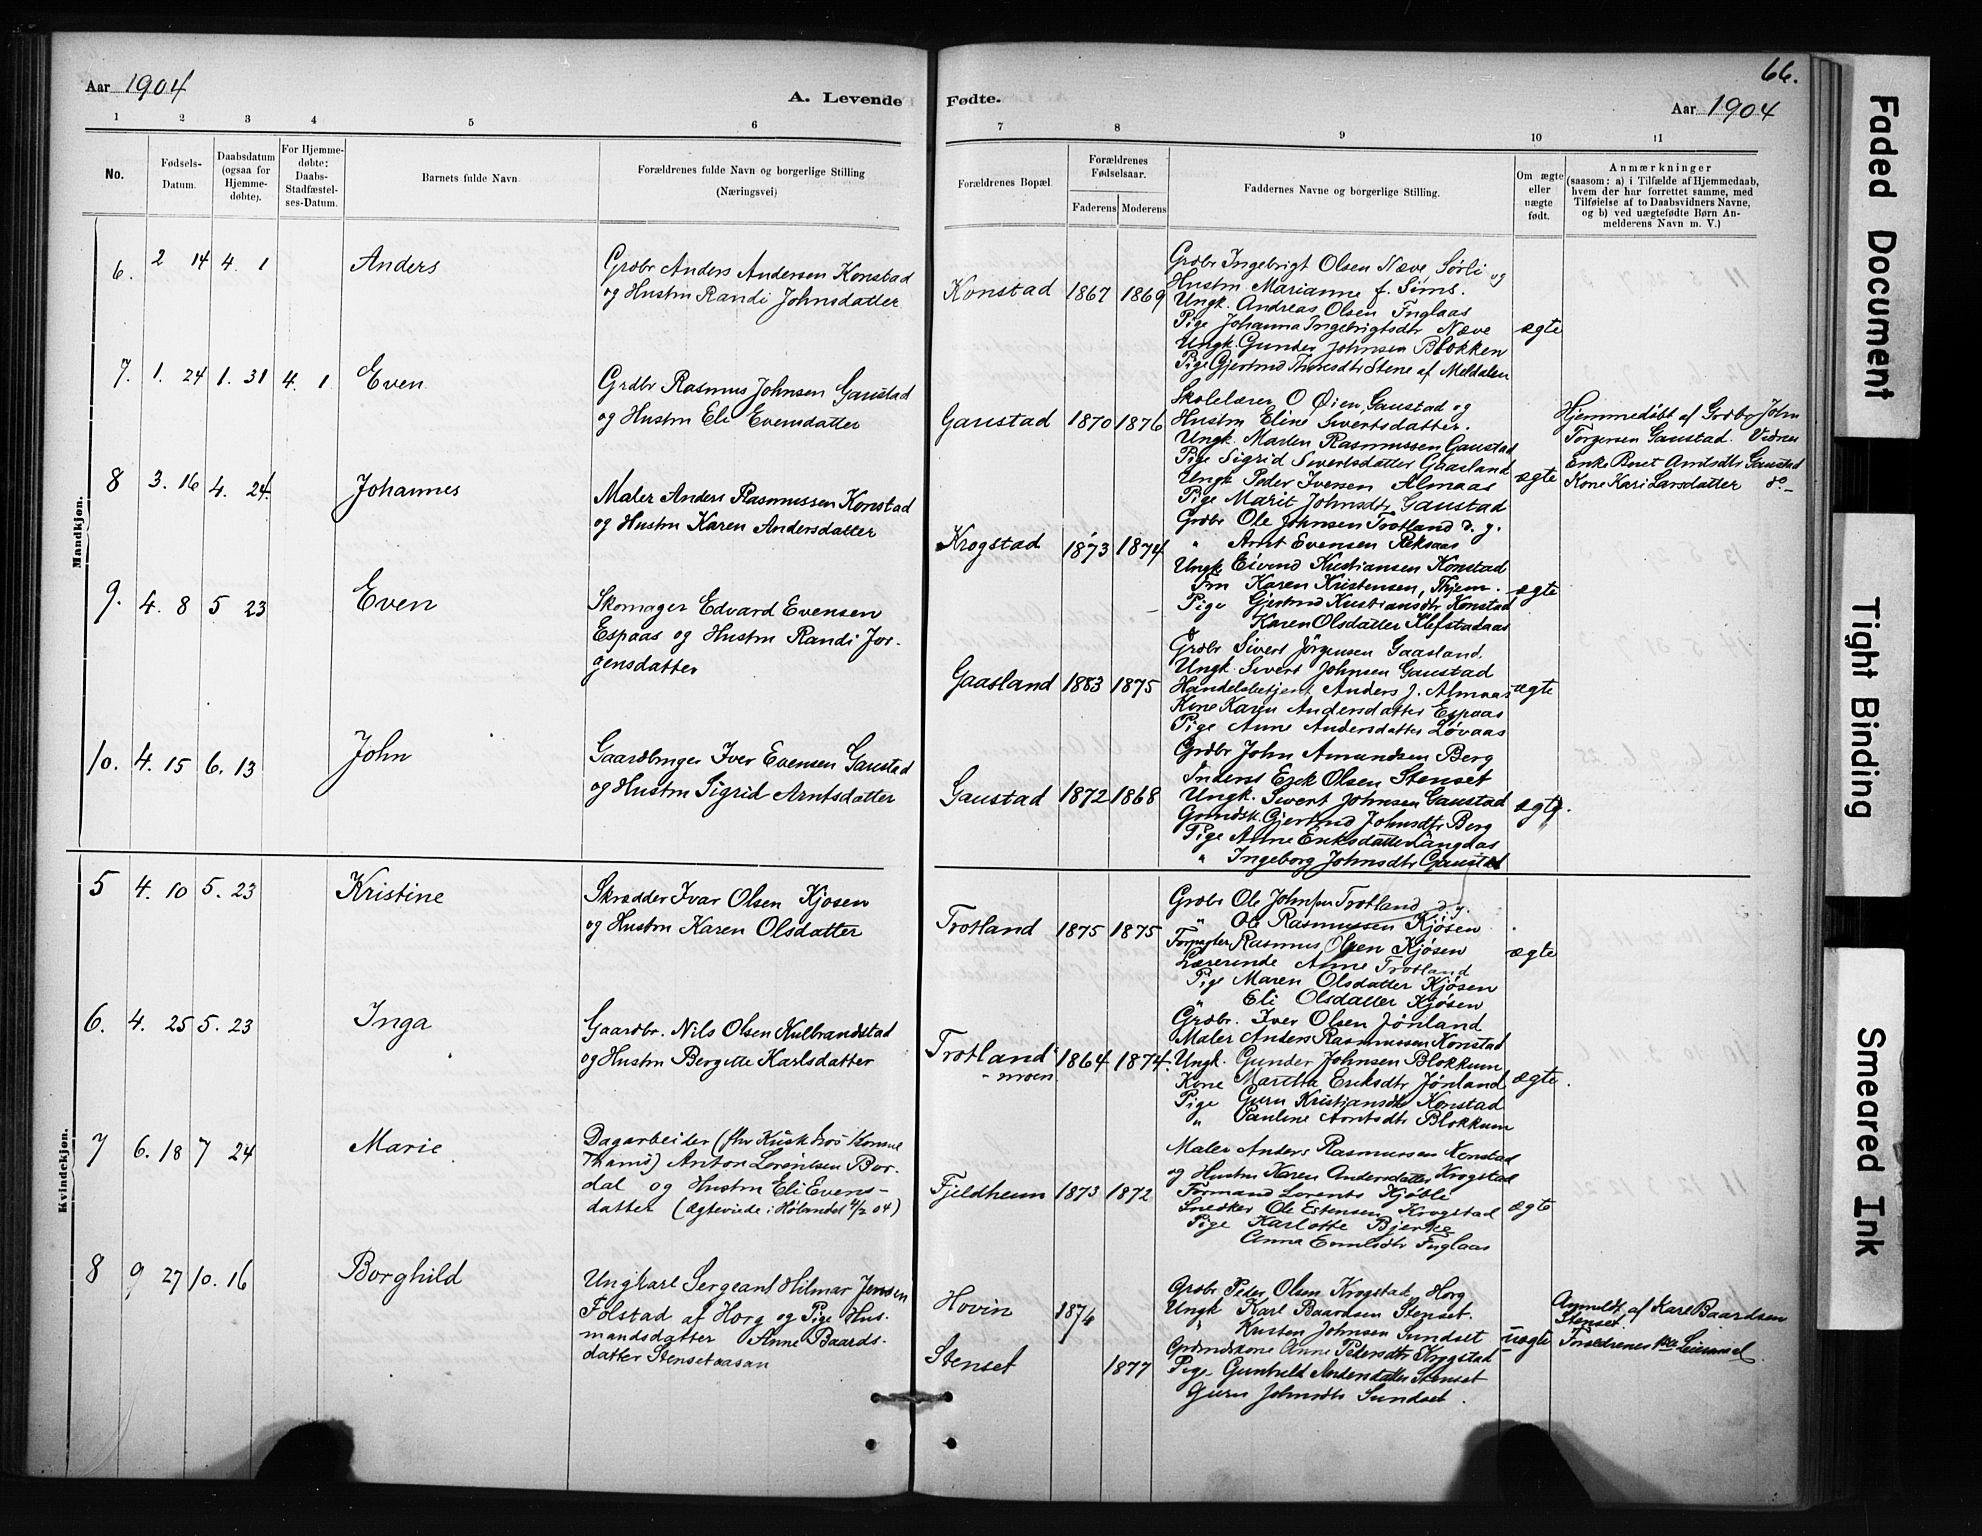 Aar 1904
A. Levende
Fødte.
66.
Aar 1904
1 2 3 4 5 6 7 8 9 10 11
No.
Fødsels-
Datum.
Daabsdatum
(ogsaa for
Hjemme-
døbte).
For Hjemme-
døbte:
Daabs-
Stadfæstel-
ses-Datum.
Barnets fulde Navn
Forældrenes fulde Navn og borgerlige Stilling
(Næringsvei)
Forældrenes Bopæl.
Forældrenes
Fødselsaar.
Faderens Moderens
Faddernes Navne og borgerlige Stilling.
Om ægte
eller
uægte
født.
Anmærkninger
(saasom: a) i Tilfælde af Hjemmedaab,
hvem der har forrettet samme, med
Tilføielse af to Daabsvidners Navne,
og b) ved uægtefødte Børn An-
melderens Navn m. V.)
Mandkjøn.
6. 2 14 4. 1 Anders
Grdbr Anders Andersen Konstad
og Hustru Randi Johnsdatter
Konstad 1867 1869
Grdbr Ingebrigt Olsen Næve, Sørli og
Hustru Marianne f. Sims.
Ungk. Andreas Olsen Fuglaas
Pige Johanna Ingebrigtsdtr Næve
Ungk. Gunder Johnsen Blokken
Pige Gjertrud Thoresdtr Stene af Meldalen
ægte
7. 1. 24 1. 31 4. 1 Even
Grdbr Rasmus Johnsen Gaustad
og Hustru Eli Evensdatter
Gaustad 1870 1876
Skolelærer O Øien, Gaustad og
Hustru Eline Sivertsdatter.
Ungk. Marten Rasmussen Gaustad
Pige Sigrid Sivertsdatter Gaasland
Ungk Peder Iversen Almaas
Pige Marit Johnsdtr Gaustad
ægte
Hjemmedøbt af Grdbr John
Torgersen Gaustad. Vidner
Enke Beret Arntsdtr Gaustad
Kone Kari Larsdatter do
8 3. 16 4. 24. Johannes
Maler Anders Rasmussen Konstad
og Hustru Karen Andersdatter
Krogstad 1873 1874
Grdbr Ole Johnsen Trotland d. y.
" Arnt Evensen Reksaas
Ungk Eivind Kristiansen Konstad
Fru Karen Kristensen, Thjem.
Pige Gjertrud Kristiansdtr Konstad
Karen Olsdatter Klefstadaas
ægte
9. 4. 8 5 23 Even
Skomager Edvard Evensen
Espaas og Hustru Randi Jør-
gensdatter
Gaasland 1883 1875
Grdbr Sivert Jørgensen Gaasland.
Ungk. Sivert Johnsen Gaustad
Handelsbetjent Anders J. Almaas
Kone Karen Andersdatter Espaas
Pige Anne Andersdatter Løvaas
ægte
10. 4. 15 6. 13 John
Gaardbruger Iver Evensen Gaustad
og Hustru Sigrid Arntsdatter
Gaustad 1872 1868
Grdbr John Amundsen Berg
Inderst Erik Olsen Stenset
Ungk. Sivert Johnsen Gaustad
Grdmdsk. Gjertrud Johnsdtr Berg
Pige Anne Eriksdatter Langaas
" Ingeborg Johnsdtr Gaustad
ægte.
Kvindekjøn.
5 4. 10 5. 23 Kristine
Skrædder Ivar Olsen Kjøsen
og Hustru Karen Olsdatter
Trotland 1875 1875
Grdbr Ole Johnsen Trotland d. y.
" Ole Rasmussen Kjøsen
Forpagter Rasmus Olsen Kjøsen
Lærerinde Anne Trotland
Pige Maren Olsdatter Kjøsen
" Eli Olsdatter Kjøsen
ægte
6. 4. 25 5. 23 Inga
Gaardbr. Nils Olsen Kulbrandstad
og Hustru Bergitte Karlsdatter
Trotland
- moen 1864 1874.
Grdbr. Iver Olsen Jønland
Maler Anders Rasmussen Konstad
Ungk. Gunder Johnsen Blokkum
Kone Maritta Eriksdtr Jønland
Pige Guru Kristiansdtr Konstad
" Pauline Arntsdtr Blokkum
ægte.
7 6. 18 7 24 Marie
Dagarbeider (fhv Kusk hos
Thams) Anton Lorentsen Bor-
dal og Hustru Eli Evens-
datter (ægteviede i Hølandet 4/2 04)
Fjeldheim 1873 1872
Maler Anders Rasmussen Konstad
og Hustru Karen Andersdatter Krogstad
Formand Lorents Kjøbli
Snedker Ole Estensen Krogstad
Pige Karlotte Bjerke
Anna Emilsdtr Fuglaas
ægte
8 9 27 10. 16 Borghild
Ungkarl Sergeant Hilmar Jensen
Folstad af Horg og Pige Hus-
mandsdatter Anne Baards-
datter Stensetaasan
Hovin 1874
Stenset 1877
Grdbr Peder Olsen Krogstad, Horg
Ungk Karl Baardsen Stenset.
" Kristen Johnsen Sundset
Grdmdskone Anne Pedersdtr Krogstad
Pige Gunhild Andersdatter Stenset
Guru Johnsdtr Sundset.
uægte
Anmeldt af Karl Baardsen
Stenset.
Forældrenes 1ste Leiermaal.
Faded Document
Tight Binding
Smeared Ink